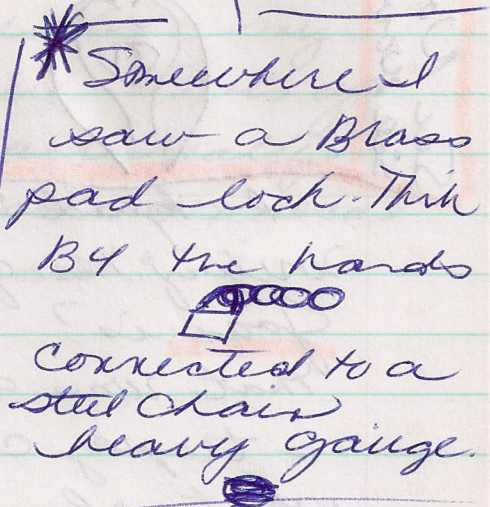 Somewhere I
saw a Brass
pad lock. Think
By the hands
connected to a
steel chain
heavy gauge.